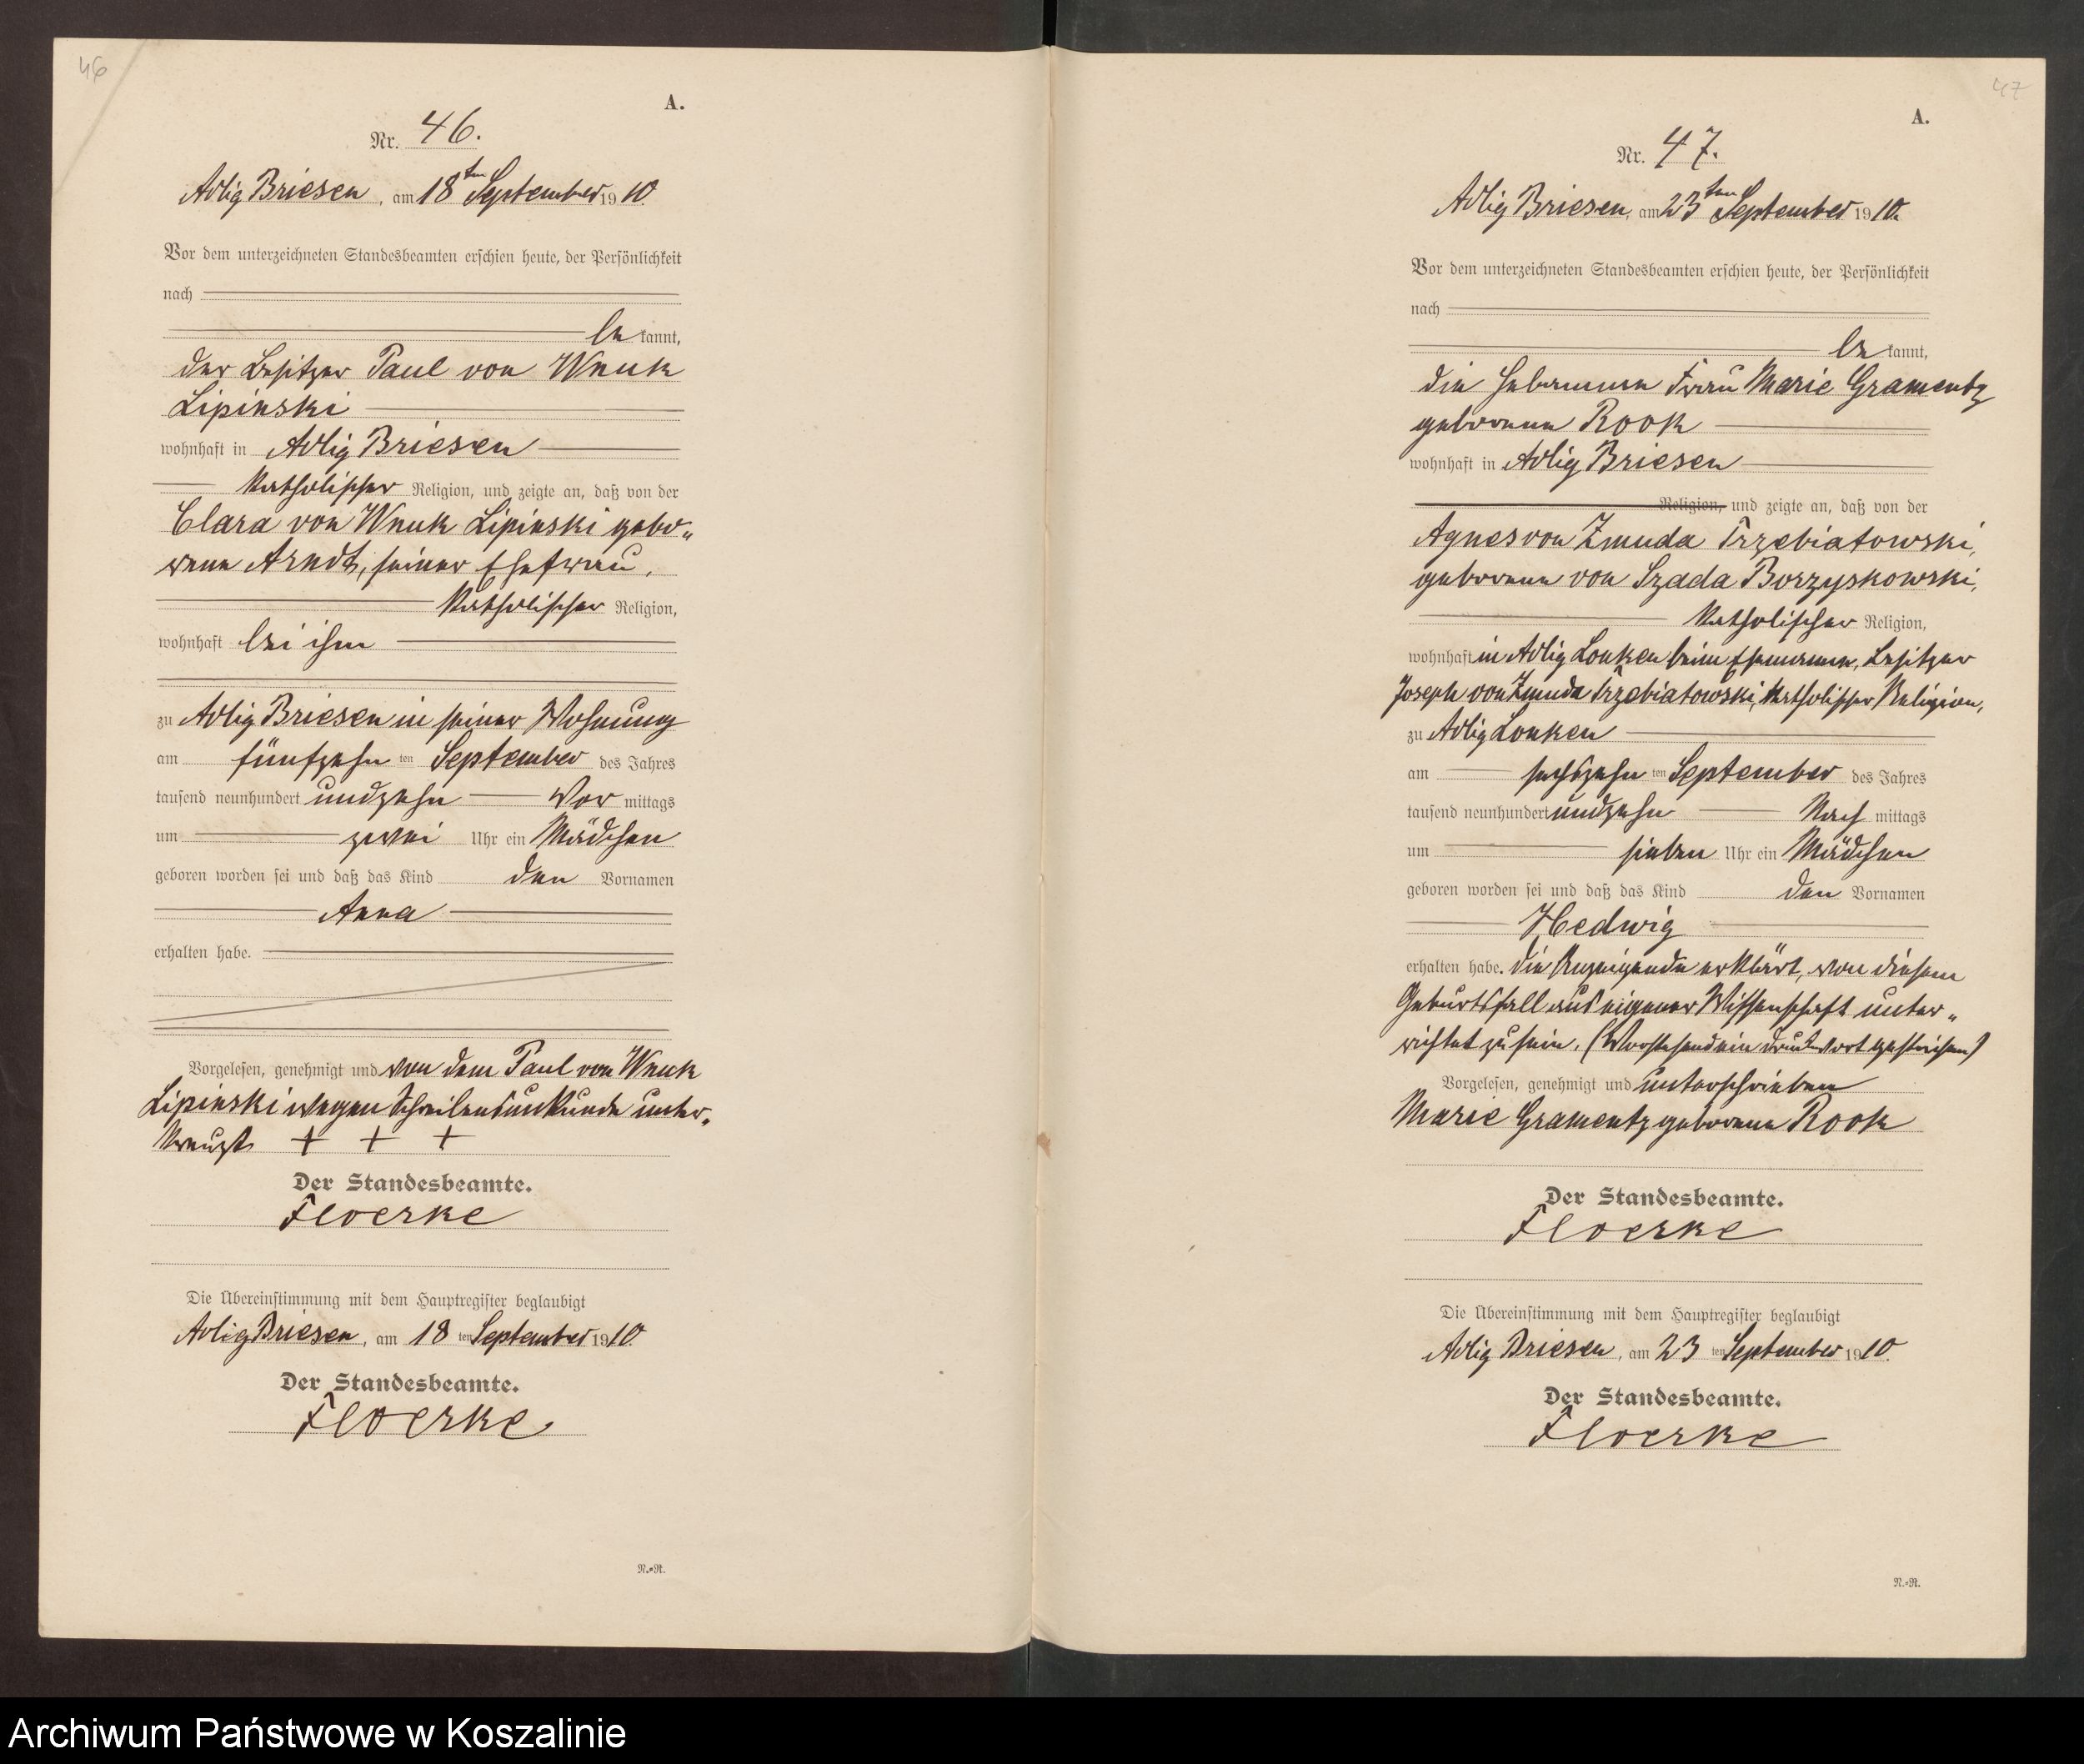 46
A.
Nr. 46.
Adlig Briesen, am 18ten September 1910.
Vor dem unterzeichneten Standesbeamten erschien heute, der Persönlichkeit
nach
be kannt,
der Besitzer Paul von Wnuk
Lipinski
wohnhaft in Adlig Briesen
katholischer Religion, und zeigte an, daß von der
Clara von Wnuk Lipinski gebo„
renen Arndt, seiner Ehefrau,
katholischer Religion,
wohnhaft bei ihm
zu Adlig Briesen in seiner Wohnung
am fünfzehn ten September des Jahres
tausend neunhundert undzehn Vor mittags
um zwei Uhr ein Mädchen
geboren worden sei und daß das Kind den Vornamen
Anna
erhalten habe.
Vorgelesen, genehmigt und von dem Paul von Wnuk
Lipinski wegen Schreibensunkunde unter„
kreuzt + + +
Der Standesbeamte.
Floerke
Die Übereinstimmung mit dem Hauptregister beglaubigt
Adlig Briesen, am 18 ten September 1910.
Der Standesbeamte.
Floerke
N.=R.
47
A.
Nr. 47.
Adlig Briesen, am 23ten September 1910.
Vor dem unterzeichneten Standesbeamten erschien heute, der Persönlichkeit
nach
be kannt,
die Hebamme Frau Marie Gramentz
geborene Rook
wohnhaft in Adlig Briesen
Religion, und zeigte an, daß von der
Agnes von Zmuda Trzebiatowski,
geborenen von Szada Borzyskowski,
katholischer Religion,
wohnhaft in Adlig Lonken beim Ehemanne, Besitzer
Joseph von Zmuda Trzebiatowski, katholischer Religion,
zu Adlig Lonken
am sechszehn ten September des Jahres
tausend neunhundert undzehn Nach mittags
um sieben Uhr ein Mädchen
geboren worden sei und daß das Kind den Vornamen
Hedwig
erhalten habe. Die Anzeigende erklärt, von diesem
Geburtsfall aus eigener Wissenschaft unter„
richtet zu sein. (Vorstehend ein Druckwort gestrichen)
Vorgelesen, genehmigt und unterschrieben
Marie Gramentz geborene Rook
Der Standesbeamte.
Floerke
Die Übereinstimmung mit dem Hauptregister beglaubigt
Adlig Briesen, am 23 ten September 1910.
Der Standesbeamte.
Floerke
N.=R.
Archiwum Państwowe w Koszalinie